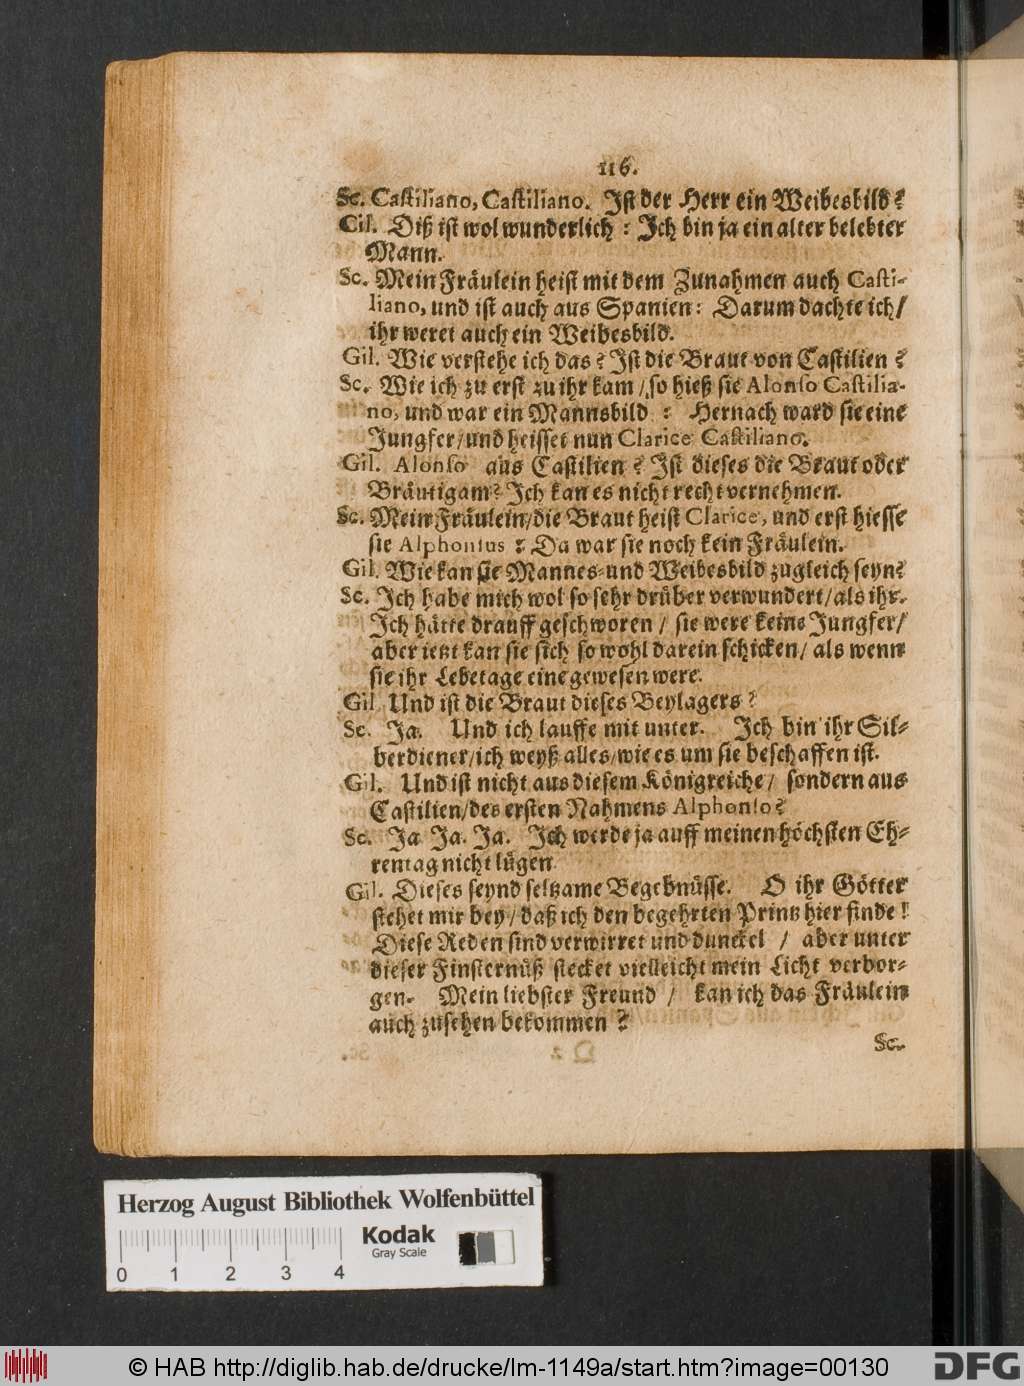 116.
Sc. Castiliano, Castiliano. Ist der Herr ein Weibesbild?
Gil. Diß ist wol wunderlich: Ich bin ja ein alter belebter
Mann.
Sc. Mein Fräulein heist mit dem Zunahmen auch Casti-
liano, und ist auch aus Spanien: Darum dachte ich/
ihr weret auch ein Weibesbild.
Gil. Wie verstehe ich das? Ist die Braut von Castilien?
Sc. Wie ich zu erst zu ihr kam/ so hieß sie Alonso Castilia-
no, und war ein Mannsbild: Hernach ward sie eine
Jungfer/ und heisset nun Clarice Castiliano.
Gil. Alonso aus Castilien? Ist dieses die Braut oder
Bräutigam? Ich kan es nicht recht vernehmen.
Sc. Mein Fräulein/ die Braut heist Clarice, und erst hiesse
sie Alphonsus: Da war sie noch kein Fräulein.
Gil. Wie kan sie Mannes- und Weibesbild zugleich seyn?
Sc. Ich habe mich wol so sehr drüber verwundert/ als ihr.
Ich hätte drauff geschworen/ sie were keine Jungfer/
aber ietzt kan sie sich so wohl darein schicken/ als wenn
sie ihr Lebetage eine gewesen were.
Gil. Und ist die Braut dieses Beylagers?
Sc. Ja. Und ich lauffe mit unter. Ich bin ihr Sil-
berdiener/ ich weyß alles/ wie es um sie beschaffen ist.
Gil. Und ist nicht aus diesem Königreiche/ sondern aus
Castilien/ des ersten Nahmens Alphonso?
Sc. Ja Ja. Ja. Ich werde ja auff meinen höchsten Eh-
rentag nicht lügen.
Gil. Dieses seynd seltzame Begebnüsse. O ihr Götter
stehet mir bey/ daß ich den begehrten Printz hier finde!
Diese Reden sind verwirret und dunckel/ aber unter
dieser Finsternüß stecket vielleicht mein Licht verbor-
gen. Mein liebster Freund/ kan ich das Fräulein
auch zusehen bekommen?
Sc.
Herzog August Bibliothek Wolfenbüttel
Kodak
Gray Scale
0 1 2 3 4
© HAB http://diglib.hab.de/drucke/lm-1149a/start.htm?image=00130
DFG